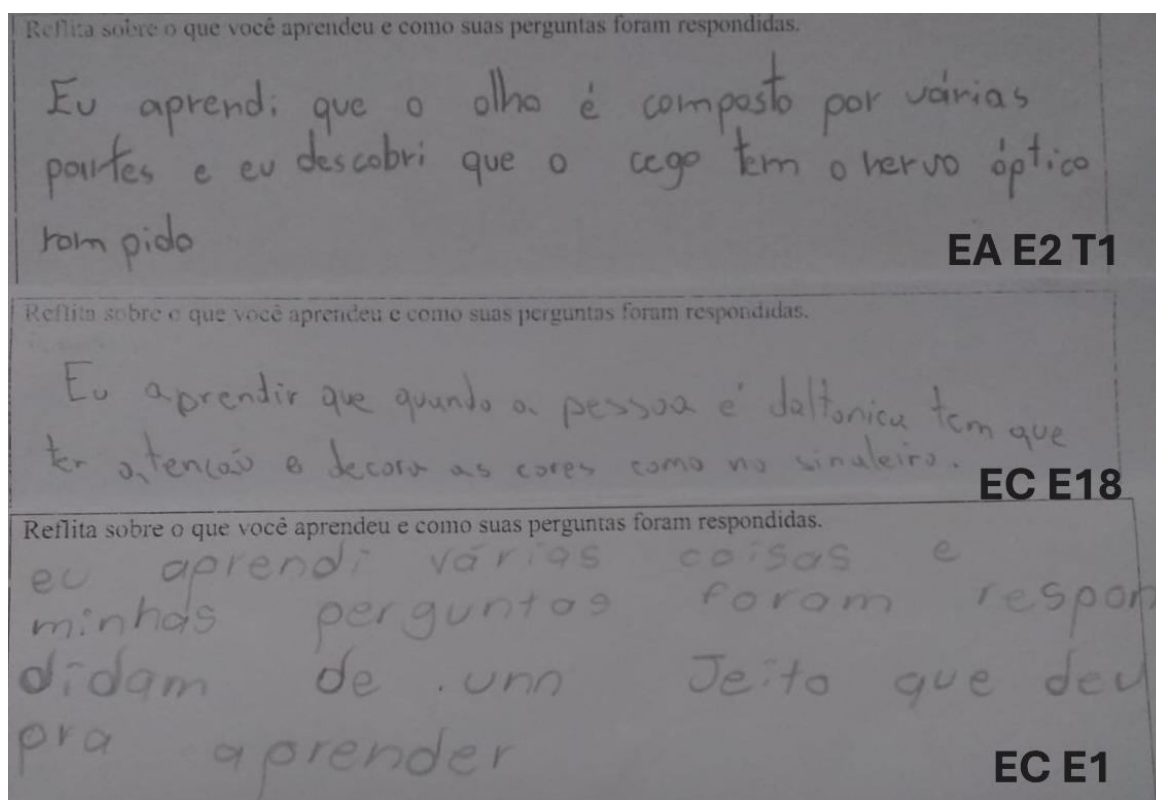 Reflita sobre o que você aprendeu e como suas perguntas foram respondidas.
Eu aprendi que o olho é composto por várias
partes e eu descobri que o cego tem o nervo óptico
rompido
EA E2 T1
Reflita sobre o que você aprendeu e como suas perguntas foram respondidas.
Eu aprendir que quando a pessoa é daltonica tem que
ter atencaõ e decora as cores como no sinaleiro.
EC E18
Reflita sobre o que você aprendeu e como suas perguntas foram respondidas.
eu aprendi várias coisas e
minhas perguntas foram respon
didam de unn Jeito que deu
pra aprender
EC E1